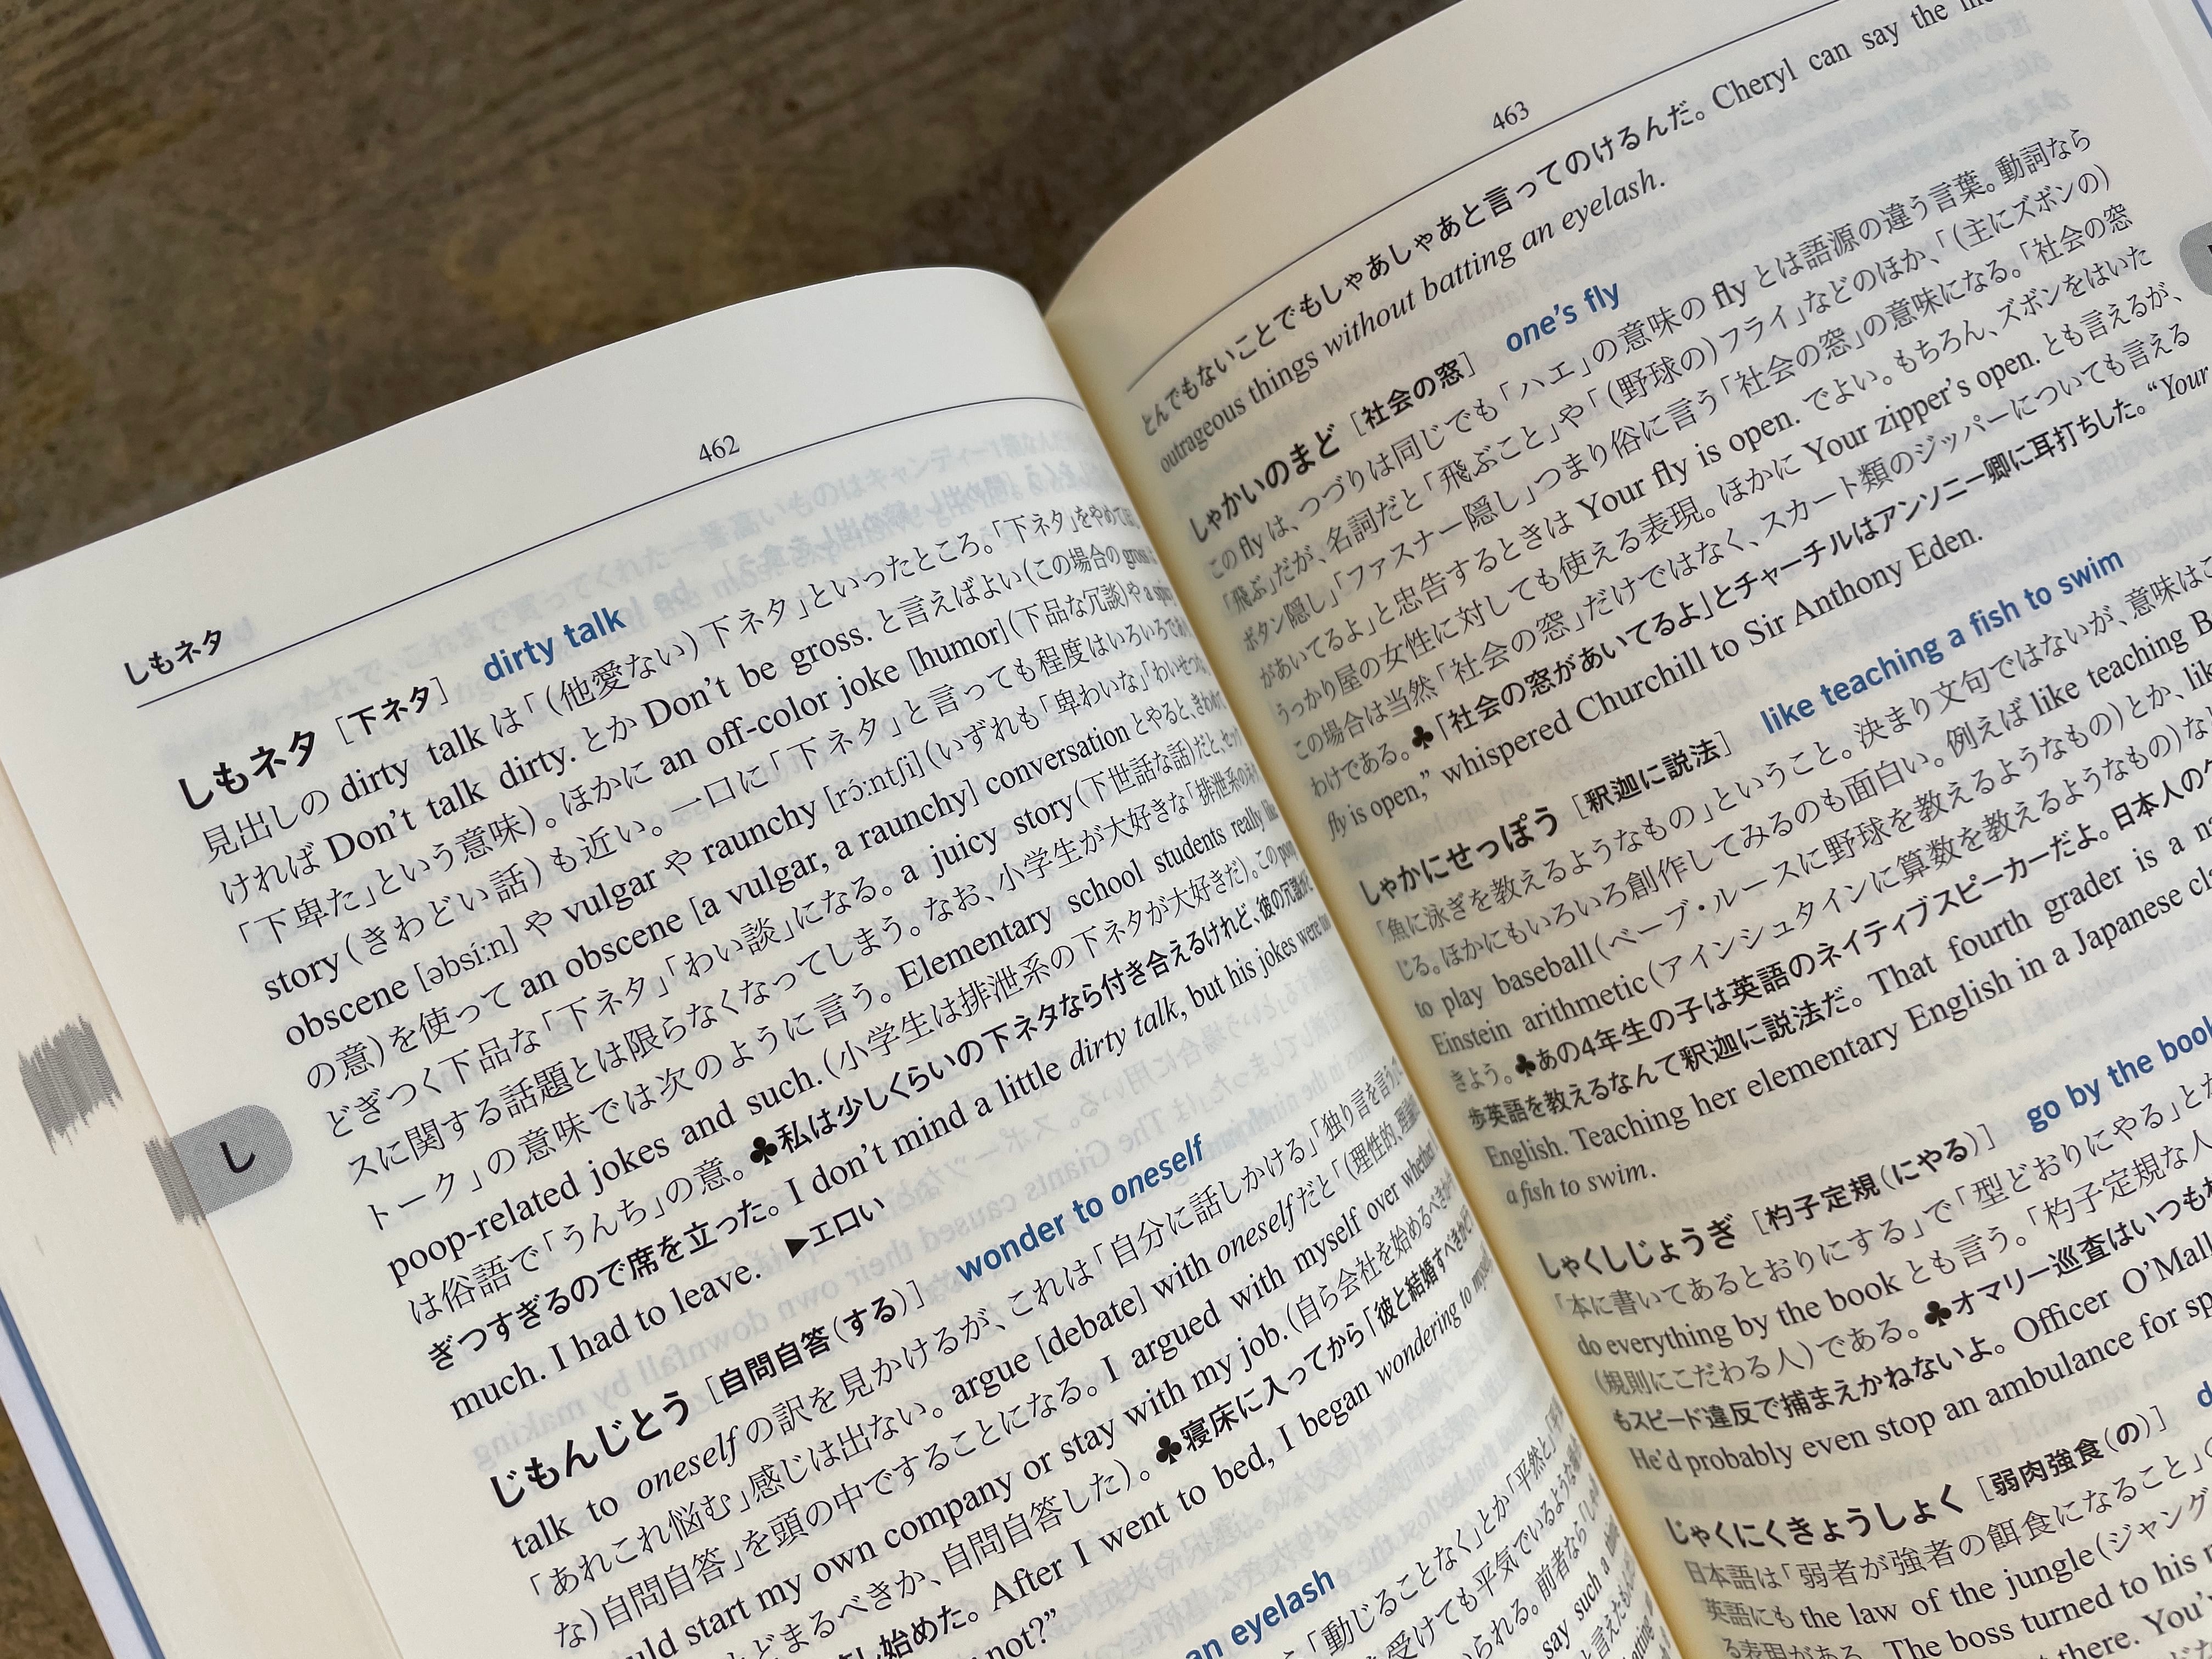 462
しもネタ
しもネタ［下ネタ］ dirty talk
見出しの dirty talk は「（他愛ない）下ネタ」といったところ。「下ネタ」をやめて
ければ Don't talk dirty. とか Don't be gross. と言えばよい（この場合の gross
「下卑た」という意味）。ほかに an off-color joke [humor]（下品な冗談）や a spicy
story（きわどい話）も近い。一口に「下ネタ」と言っても程度はいろいろで
obscene [əbsíːn] や vulgar や raunchy [rɔ́ːntʃi]（いずれも「卑わいな」「わいせつな
の意）を使って an obscene [a vulgar, a raunchy] conversation とやると、きわめて
どぎつく下品な「下ネタ」「わい談」になる。a juicy story（下世話な話）だと、セック
スに関する話題とは限らなくなってしまう。なお、小学生が大好きな「排泄系の
トーク」の意味では次のように言う。Elementary school students really like
poop-related jokes and such.（小学生は排泄系の下ネタが大好きだ）。この poop
は俗語で「うんち」の意。♣私は少しくらいの下ネタなら付き合えるけれど、彼の冗談が
ぎつすぎるので席を立った。I don't mind a little dirty talk, but his jokes were too
much. I had to leave. ▶エロい
し
じもんじとう［自問自答（する）］ wonder to oneself
talk to oneself の訳を見かけるが、これは「自分に話しかける」「独り言を言う」
「あれこれ悩む」感じは出ない。argue [debate] with oneself だと「（理性的、
な）自問自答」を頭の中ですることになる。I argued with myself over whether
uld start my own company or stay with my job.（自ら会社を始めるべきか
どまるべきか、自問自答した）。♣寝床に入ってから「彼と結婚すべきか
し始めた。After I went to bed, I began wondering to myself
not?”
an eyelash
「動じることなく」とか「平然と」
受けても平気でいるような
られる。前者なら「しゃ
say such a
463
とんでもないことでもしゃあしゃあと言ってのけるんだ。Cheryl can say the
outrageous things without batting an eyelash.
しゃかいのまど［社会の窓］ one's fly
この fly は、つづりは同じでも「ハエ」の意味の fly とは語源の違う言葉。動詞なら
「飛ぶ」だが、名詞だと「飛ぶこと」や「（野球の）フライ」などのほか、「（主にズボンの）
ボタン隠し」「ファスナー隠し」つまり俗に言う「社会の窓」の意味になる。「社会の窓
があいてるよ」と忠告するときは Your fly is open. でよい。もちろん、ズボンをはいた
うっかり屋の女性に対しても使える表現。ほかに Your zipper's open. とも言えるが、
この場合は当然「社会の窓」だけではなく、スカート類のジッパーについても言える
わけである。♣「社会の窓があいてるよ」とチャーチルはアンソニー卿に耳打ちした。“Your
fly is open,” whispered Churchill to Sir Anthony Eden.
しゃかにせっぽう［釈迦に説法］ like teaching a fish to swim
「魚に泳ぎを教えるようなもの」ということ。決まり文句ではないが、意味は
じる。ほかにもいろいろ創作してみるのも面白い。例えば like teaching
to play baseball（ベーブ・ルースに野球を教えるようなもの）とか、
Einstein arithmetic（アインシュタインに算数を教えるようなもの）な
きよう。♣あの4年生の子は英語のネイティブスピーカーだよ。日本人の
歩英語を教えるなんて釈迦に説法だ。That fourth grader is a
English. Teaching her elementary English in a Japanese
a fish to swim.
しゃくしじょうぎ［杓子定規（にやる）］ go by the book
「本に書いてあるとおりにする」で「型どおりにやる」と
do everything by the book とも言う。「杓子定規な人
（規則にこだわる人）である。♣オマリー巡査はいつも
もスピード違反で捕まえかねないよ。Officer O'Mall
He'd probably even stop an ambulance for
じゃくにくきょうしょく［弱肉強食（の）］
日本語は「弱者が強者の餌食になること」
英語にも the law of the jungle（ジャング
る表現がある。The boss turned to his
there. You'